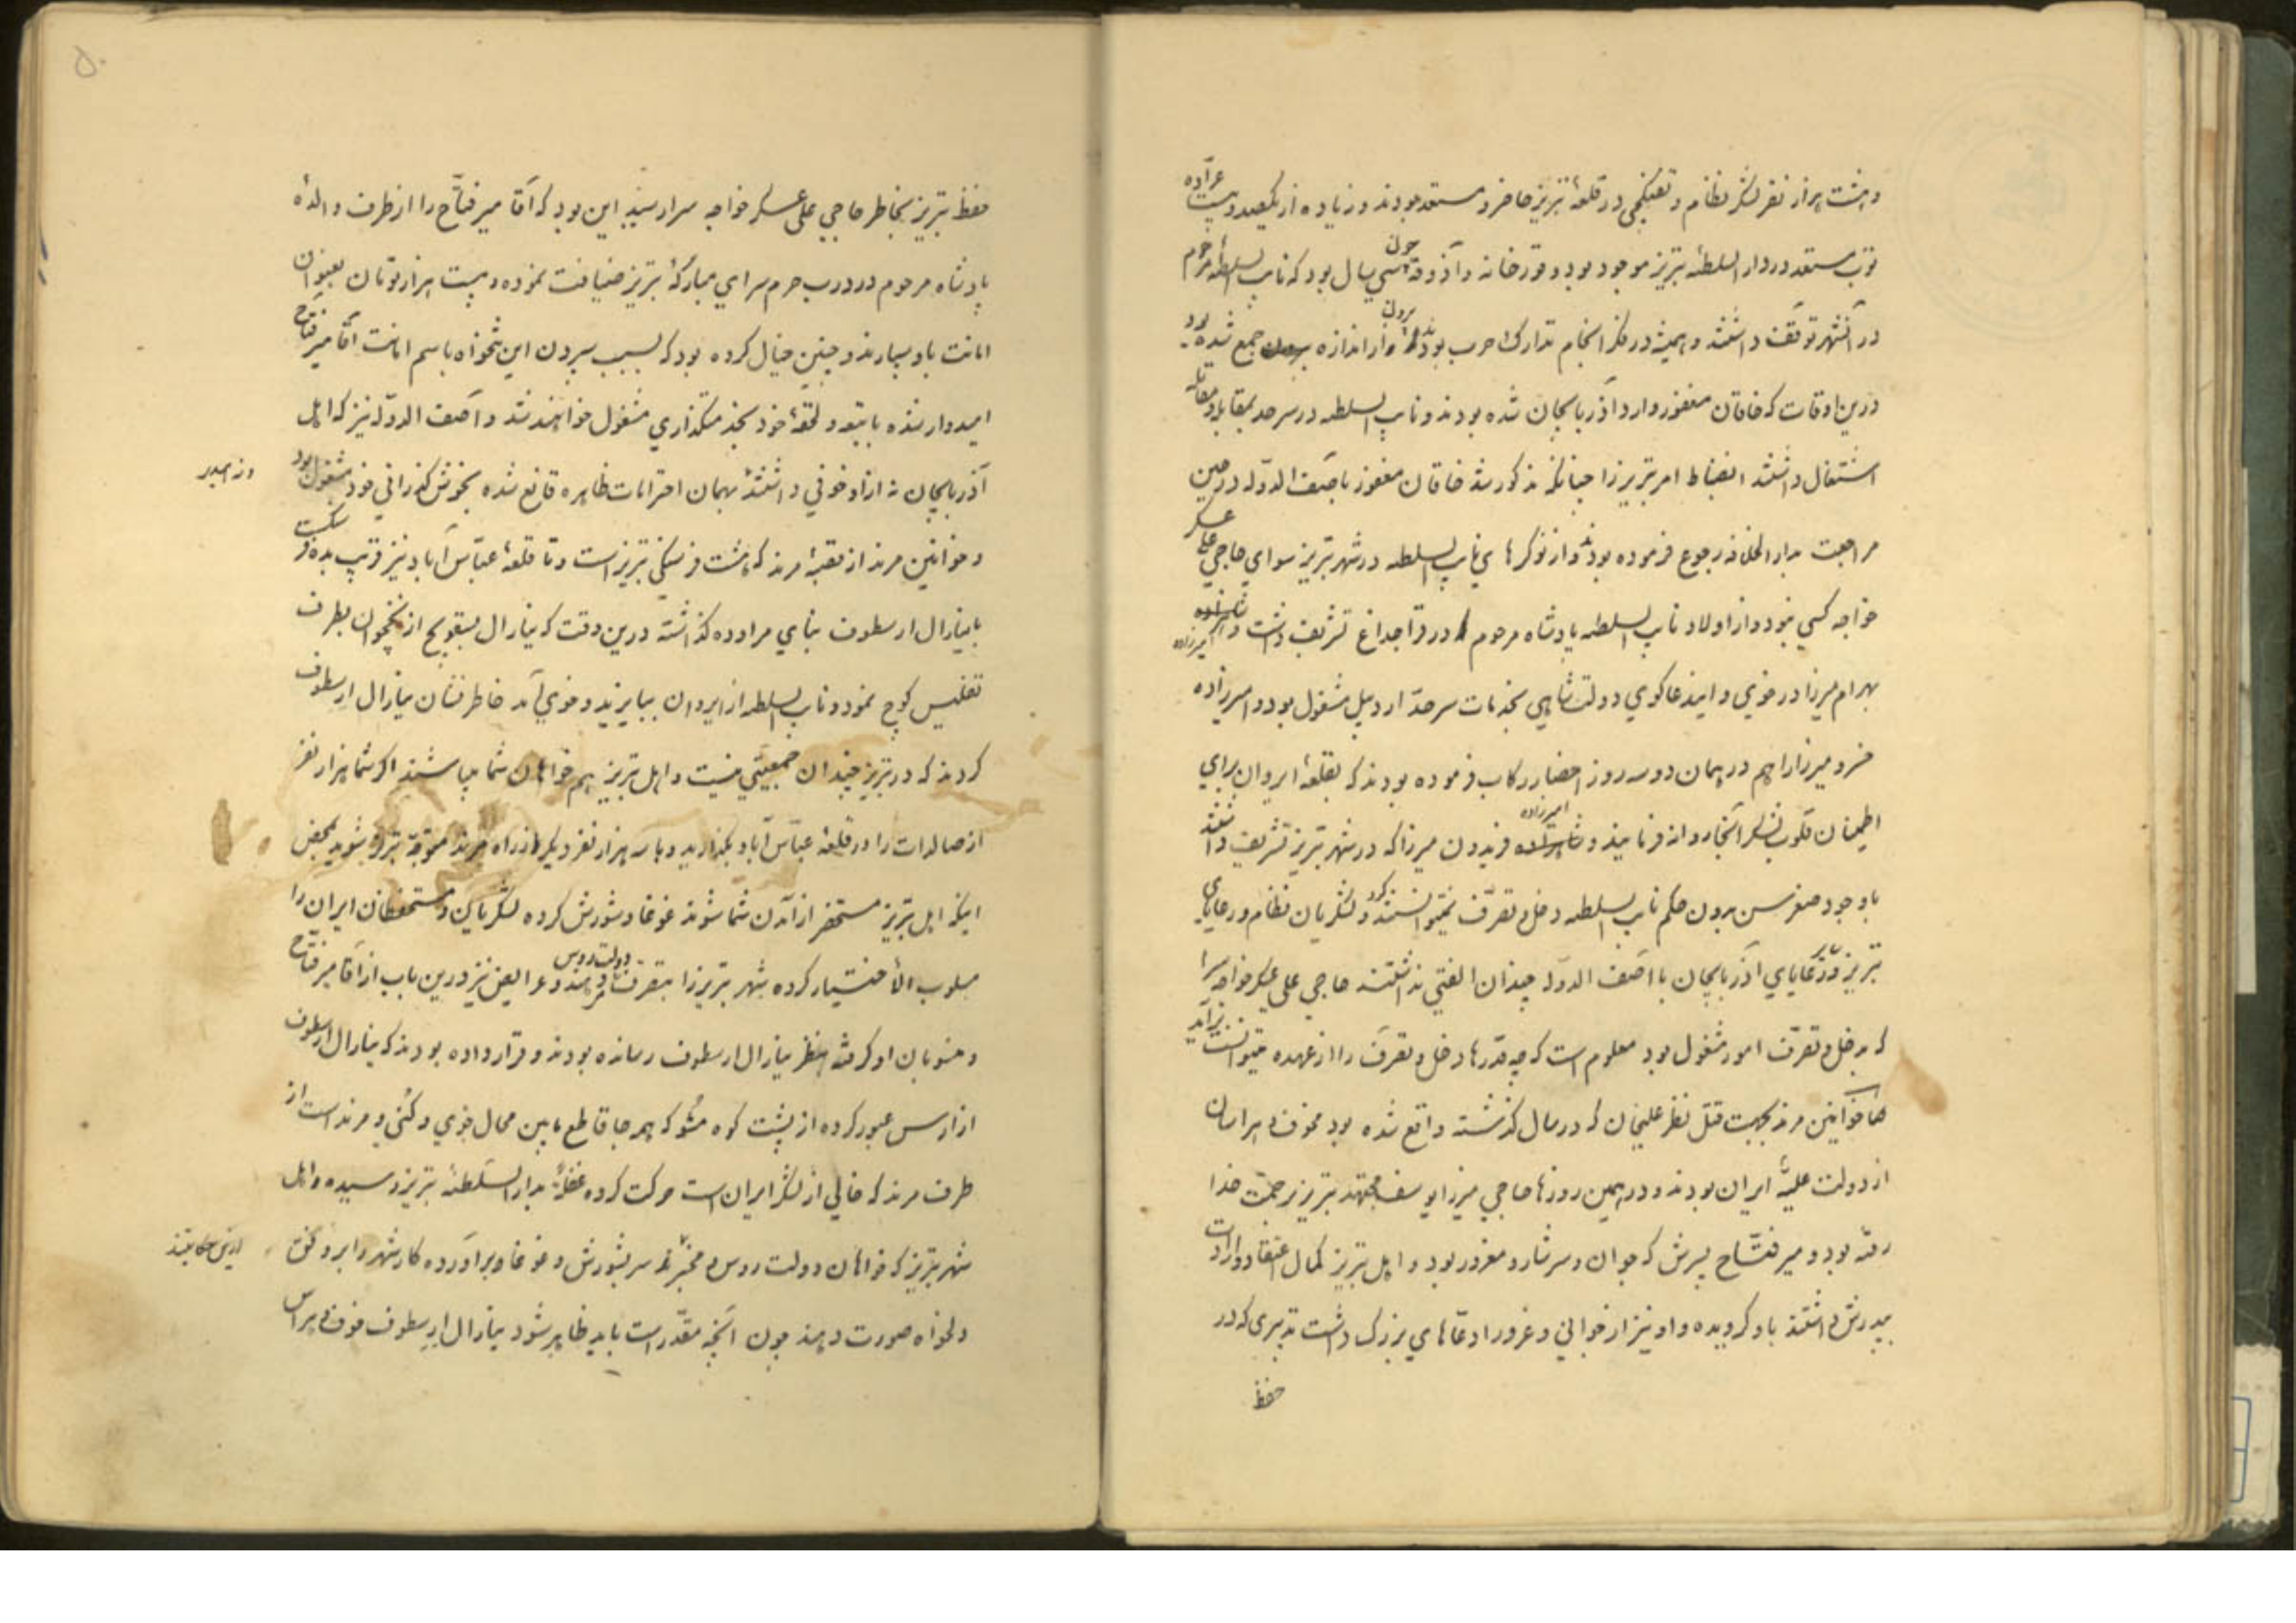 و هشت هزار نفر لشکر نظام و تفنگچی در قلعهٔ تبریز حاضر و مستعد بودند و زیاده از یکصد و بیست عرّاده
توپ مستعد در دار السلطنهٔ تبریز موجود بود و قورخانه و آذوقه چون سی سال بود که نایب السلطنهٔ مرحوم
در آنشهر توقّف داشتند و همیشه در فکر انجام تدارک حرب بودند از اندازه برون جمع شده بود
درین اوقات که خاقان مغفور وارد آذربایجان شده بودند و نایب السلطنه در سرحد بمقابله و مقاتله
اشتغال داشتند انضباط امر تبریز را چنانکه مذکور شد خاقان مغفور بآصف الدوّله در حین
مراجعت بدار الخلافه رجوع فرموده بودند و از نوکرهای نایب السلطنه در شهر تبریز سوای حاجی علی عسکر
خواجه کسی نبود و از اولاد نایب السلطنه پادشاه مرحوم در قراجداغ تشریف داشت و امیرزاده
بهرام میرزا در خوی و ایندعاگوی دولت شاهی بخدمات سرحدّ اردبیل مشغول بود و امیرزاده
خسرو میرزا را هم در همان دو سه روز احضار رکاب فرموده بودند که بقلعهٔ ایروان برای
اطمینان قلوب لشکر آنجا روانه فرمایند و امیرزاده فریدون میرزا که در شهر تبریز تشریف داشتند
باوجود صغر سن بدون حکم نایب السلطنه دخل و تصرّف نمیتوانستند کرد و لشکریان نظام و رعایای
تبریز و سایر رعایای آذربایجان با آصف الدوّله چندان الفتی نداشتند حاجی علی عسکر خواجه سرا
که بدخل و تصرّف امور مشغول بود معلوم است که چه قدرها دخل و تصرّف را از عهده میتوانست برآید
خوانین مرند بجهت قتل نظر علیخان که در سال گذشته واقع شده بود مخوف و هراسان
از دولت علیّهٔ ایران بودند و در همین روزها حاجی میرزا یوسف مجتهد تبریز برحمت خدا
رفته بود و میر فتّاح پسرش که جوان و سرشار و مغرور بود و اهل تبریز کمال اعتقاد و ارادت
بپدرش داشتند باو گرویده و او نیز از جوانی و غرور ادعّاهای بزرگ داشت تدبیری که در
حفظ
۵۰
حفظ تبریز بخاطر حاجی علی عسکر خواجه سرا رسید این بود که آقا میر فتّاح را از طرف والدهٔ
پادشاه مرحوم در درب حرم سرای مبارکهٔ تبریز ضیافت نموده و بیست هزار تومان بعنوان
امانت باو بسپارند و چنین خیال کرده بود که بسبب سپردن این تنخواه باسم امانت آقا میر فتّاح
امیدوار شده با تبعه و لحقهٔ خود بخدمتگذاری مشغول خواهند شد و آصف الدوّله نیز که اهل
آذربایجان نه از او خوفی داشتند بهمان احترامات ظاهره قانع شده بخوش گذرانی خود مشغول بود
و خوانین مرند از قصبهٔ مرند که هشت فرسنگی تبریز است و تا قلعهٔ عبّاس آباد نیز قریب بده فرسنگ
بایارال ارسطوف بنای مراوده گذاشته درین وقت که ینارال بسقویچ از نخچوان بطرف
تفلیس کوچ نمود و نایب السلطنه از ایروان ببایزید و خوی آمد خاطر نشان ینارال ارسطوف
کردند که در تبریز چندان جمعیّتی نیست و اهل تبریز هم خواهان شما میباشند اگر شما هزار نفر
از صالدات را در قلعهٔ عبّاس آباد بگذارید و با سه هزار نفر دیگر از راه مرند متوجّه تبریز شوید بمحض
اینکه اهل تبریز مستحضر از آمدن شما شوند غوغا و شورش کرده لشکریان و مستحفظان ایران را
مسلوب الأختیار کرده شهر تبریز را بتصرّف دولت روس دهند و عرایض نیز درین باب از آقا میر فتّاح
و منسوبان او گرفته بنظر ینارال ارسطوف رسانده بودند و قرار داده بودند که ینارال ارسطوف
از ارس عبور کرده از پشت کوه مشوکه همه جا قاطع مابین محال خوی و و مرند است از
طرف مرند که خالی از لشکر ایران است حرکت کرده غفلةً بدار السلطنهٔ تبریز رسیده و اهل
شهر تبریز که خواهان دولت روس و سر بشورش و غوغا برآورده کار شهر را بر وفق
دلخواه صورت دهند چون آنچه مقدّر است باید ظاهر شود ینارال ارسطوف خوف و هراس